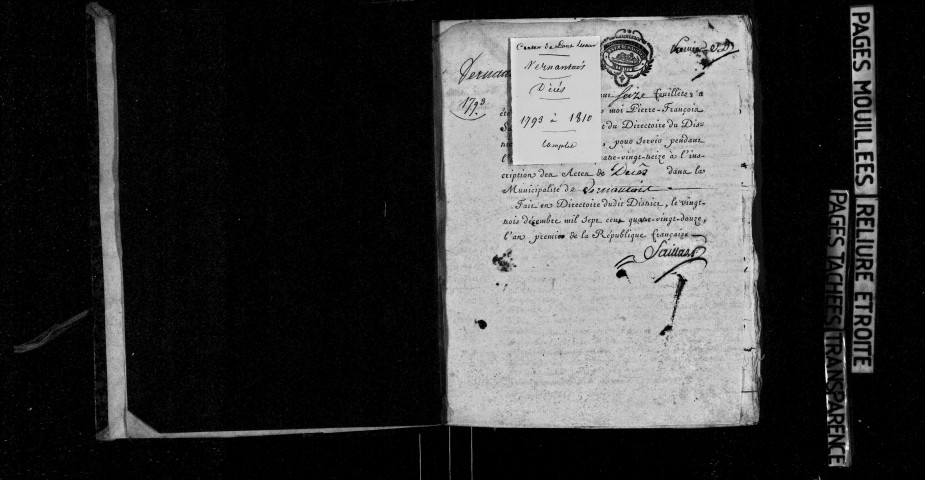 Vernan
1793
Canton de
Vernantois
Décès
1793 à 1810
Complet
Premier
seize feuillets a
moi Pierre-François
du Directoire du Dis-
pour servir pendant
l' -vingt-treize à l'ins-
cription des Actes de Décès dans la
Municipalité de Vernantois
Fait en Directoire dudit District, le vingt-
trois décembre mil sept cent quatre-vingt-douze,
l'an premier de la République française
PAGES MOUILLEES
RELIURE ETROITE
PAGES TACHEES
TRANSPARENCE